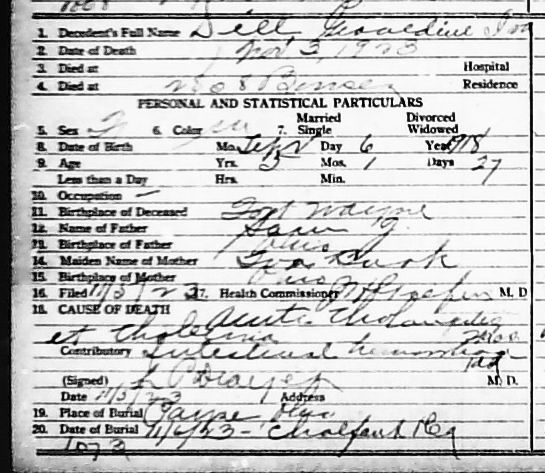 1. Decedent's Full Name Dill Geraldine Iva
2. Date of Death Nov 3, 1923
3. Died at Hospital
4. Died at Residence
PERSONAL AND STATISTICAL PARTICULARS
5. Sex F 6. Color W 7. Married Single Divorced Widowed
8. Date of Birth Mo. Sept Day 6 Year 1918
9. Age Yrs. 5 Mos. 1 Days 27
Less than a Day Hrs. Min.
10. Occupation —
11. Birthplace of Deceased Fort Wayne
12. Name of Father
13. Birthplace of Father Ohio
14. Maiden Name of Mother Iva
15. Birthplace of Mother Ohio
16. Filed 11/5/23 17. Health Commissioner M. D
18. CAUSE OF DEATH Acute
et
Contributory Intestinal
(Signed) M. D.
Date 11/5/23 Address
19. Place of Burial Payne Ohio
20. Date of Burial 11/6/23 - Chalfant
1073